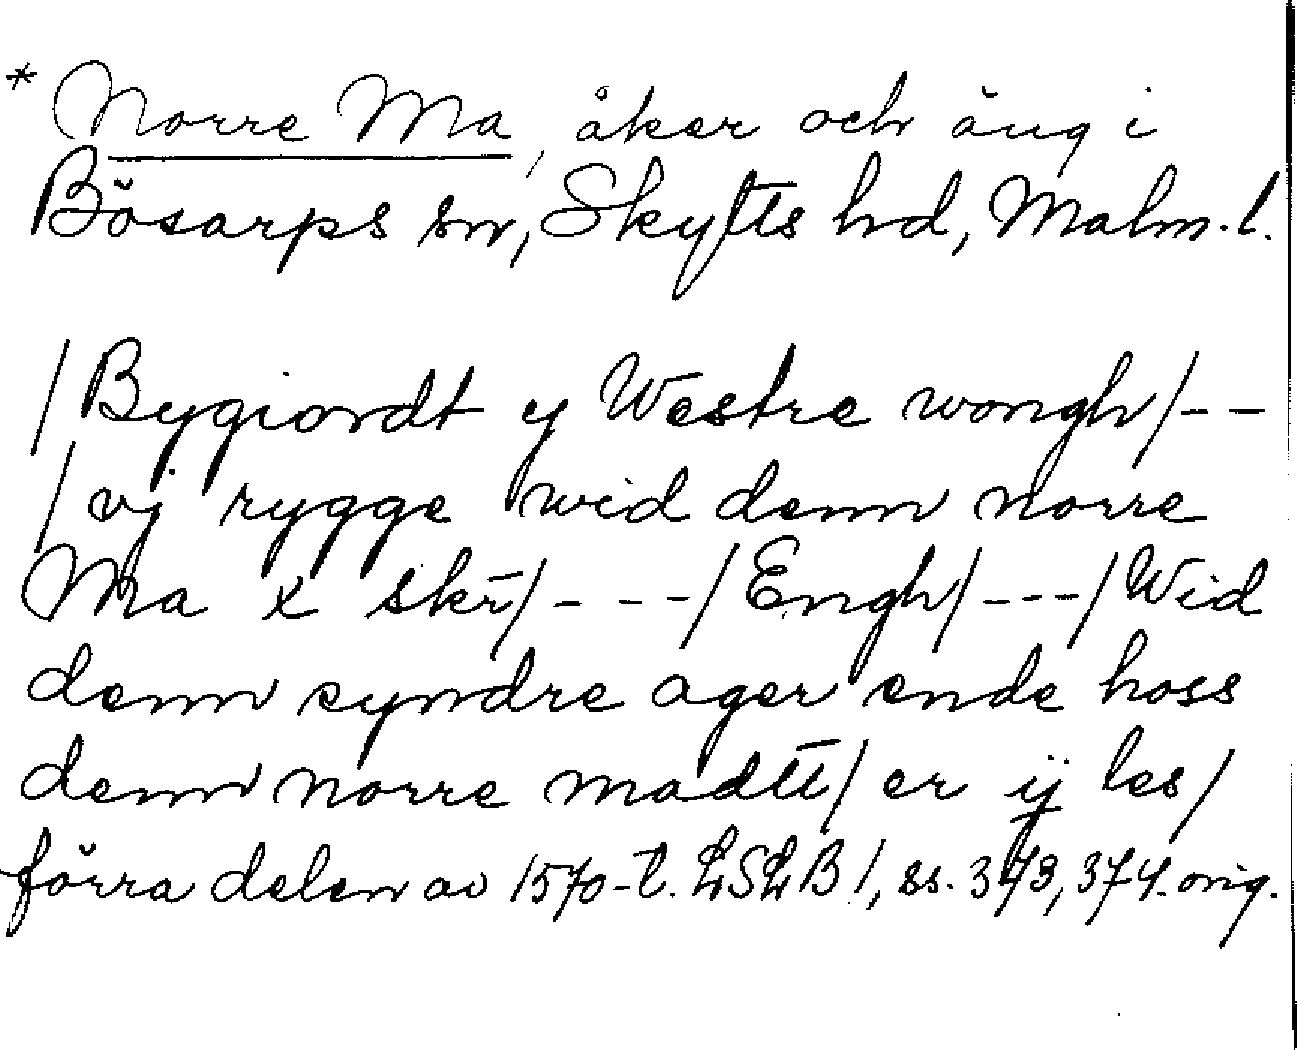 * Norre Ma, åker och äng i
Bösarps sn, Skytts hd, Malm. l.
/Bygiordt y Westre wongh/--
/vj rygge wid denn norre
Ma x skr̄/---/Engh/---/Wid
denn syndre ager ende hoss
denn norre madtt/er ij les/
förra delen av 1570-t. LSLB 1, ss. 373, 374. orig.